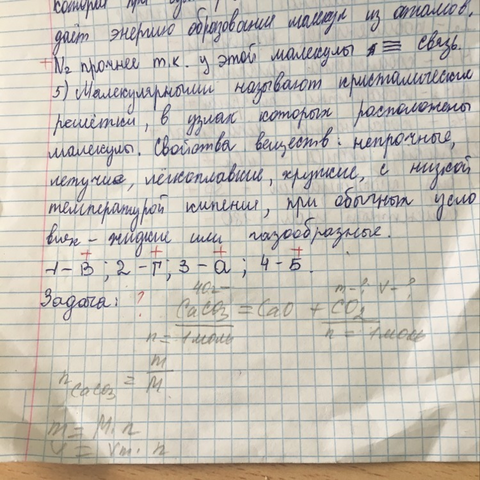 которая при
даёт энергию образования молекул из атомов.
+ N₂ прочнее т.к. у этой молекулы ≡ связь.
5) Малекулярными называют кристалические
решётки, в узлах которых расположены
малекулы. Свойства веществ: непрочные,
летучие, легкоплавкие, хрупкие, с низкой
температурой кипения, при обычных усло
виях - жидкие или газообразные.
+ + + +
1-В; 2-Г; 3-а; 4-Б.
40г m-? V-?
Задача: ? CaCO₃ = CaO + CO₂
n = 1 моль n = 1 моль
n CaCO₃ = m/M
m = M·n
V = Vm·n